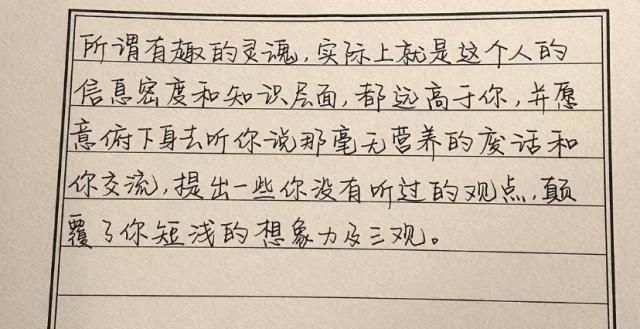 所谓有趣的灵魂，实际上就是这个人的
信息密度和知识层面，都远高于你，并愿
意俯下身去听你说那毫无营养的废话和
你交流，提出一些你没有听过的观点，颠
覆了你短浅的想象力及三观。